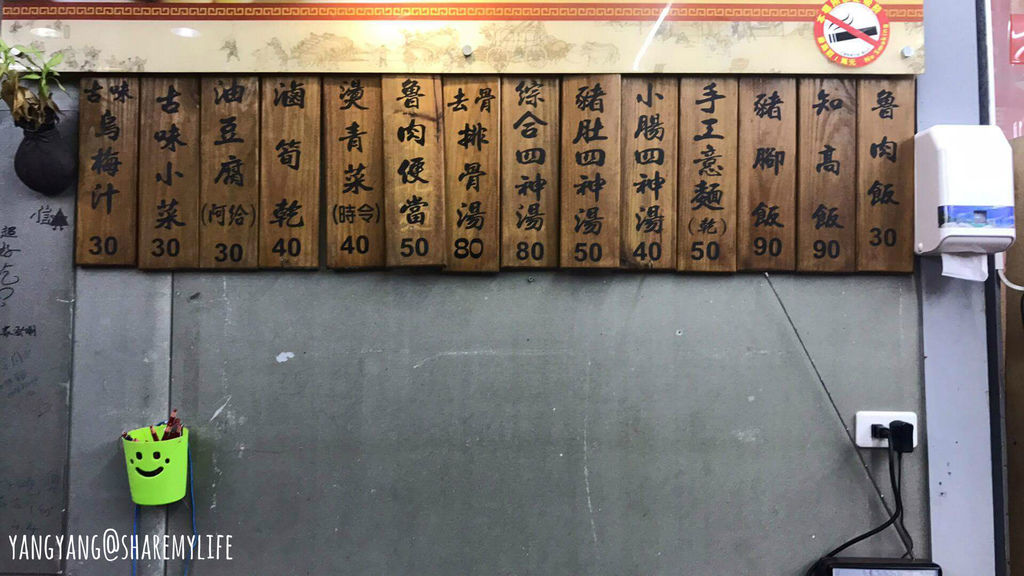 魯肉飯 30
知高飯 90
豬腳飯 90
手工意麵(乾) 50
小腸四神湯 40
豬肚四神湯 50
綜合四神湯 80
去骨排骨湯 80
魯肉便當 50
燙青菜(時令) 40
滷筍乾 40
油豆腐(阿給) 30
古味小菜 30
古味烏梅汁 30
No Smoking
YANGYANG@SHAREMYLIFE